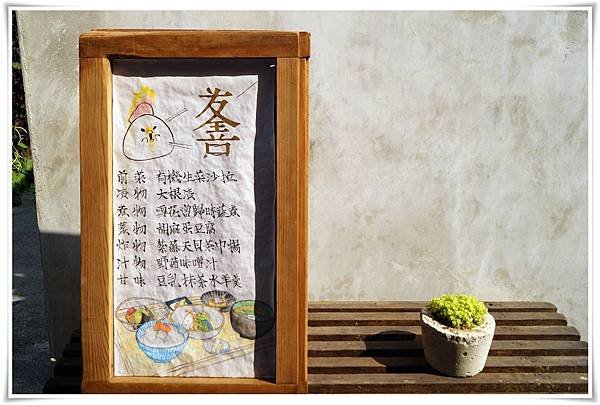 前菜 有機生菜沙拉
漬物 大根漬
煮物 雪花當歸時蔬煮
菜物 胡麻蛋豆腐
炸物 紫蘇天貝茶巾揚
汁物 野菇味噌汁
甘味 豆乳、抹茶水羊羹